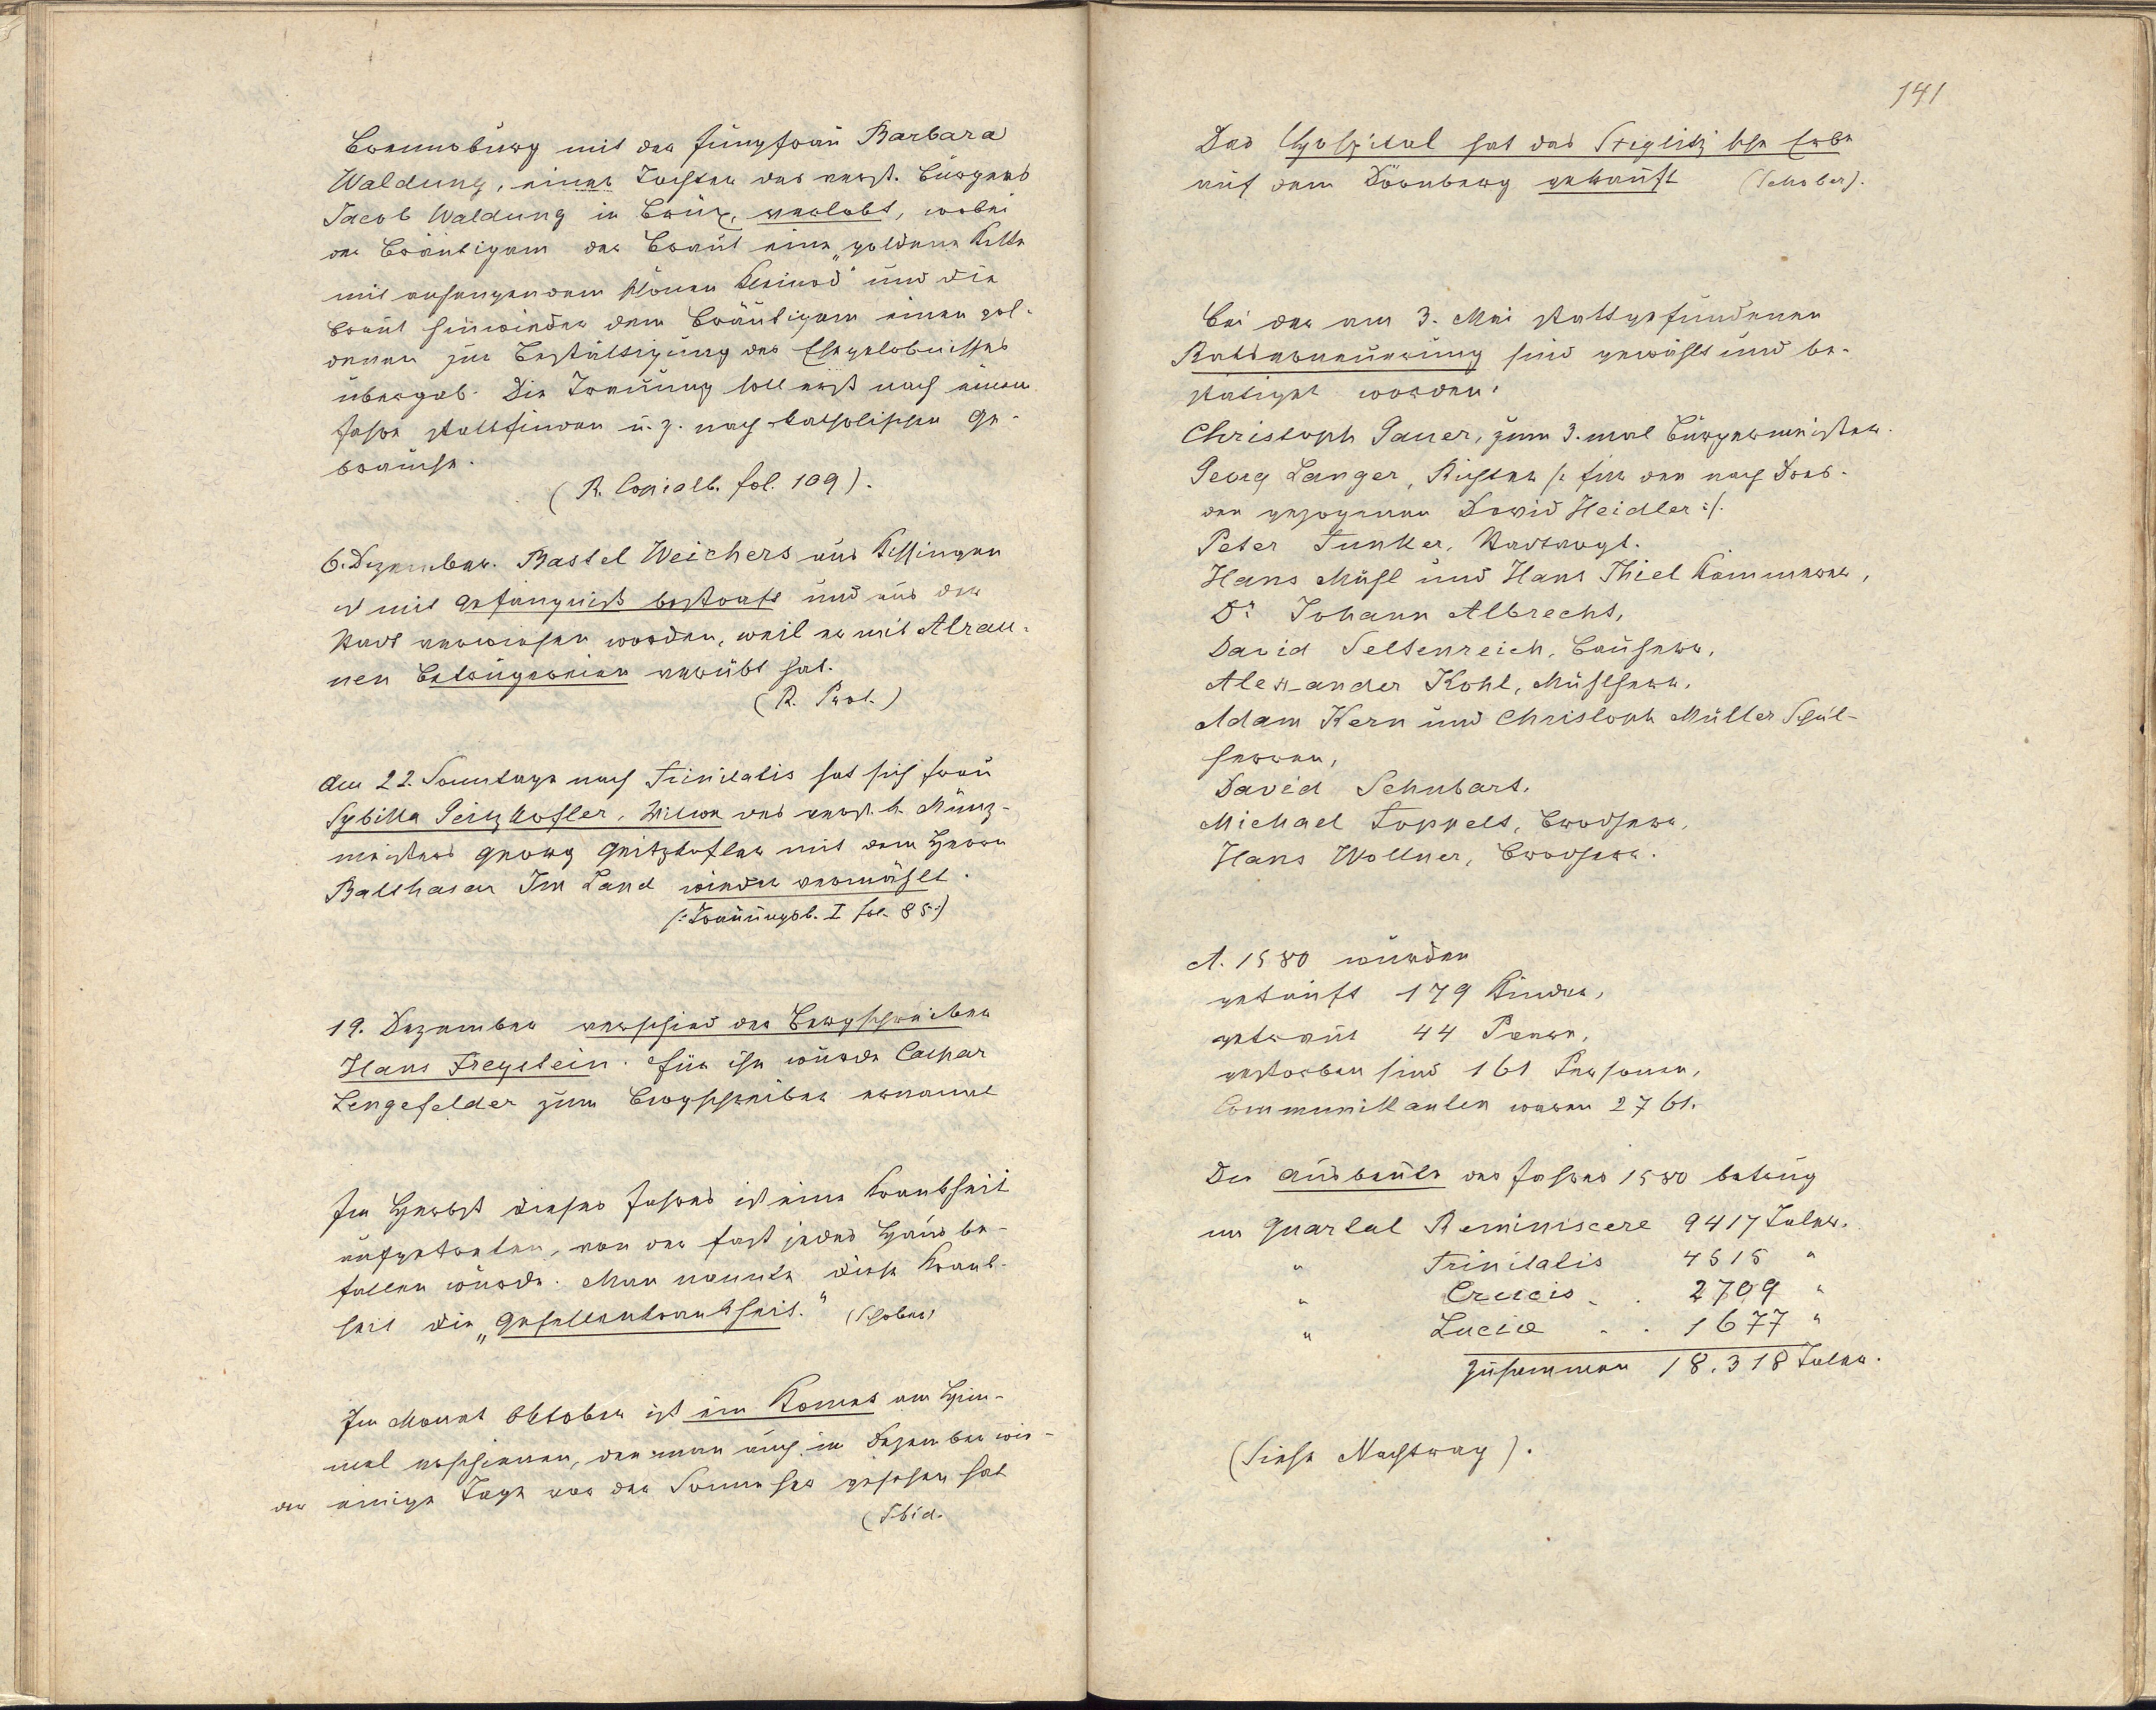 Braunsburg mit der Jungfrau Barbara
Waldung, einer Tochter des verst. Bürgers
Jacob Waldung in Brüx, verlobt, wobei
der Bräutigam der Braut eine „goldene Kette
mit anhangendem schönen Kleinod“ und die
Braut hinwieder dem Bräutigam einen gol-
denen zur Bestättigung des Ehegelobnisses
übergab. Die Trauung soll erst nach einem
Jahre stattfinden u. z. nach katholischen Ge-
brauche.
(R. Copialb. fol. 109).
6. Dezember. Bastel Weichers aus Kissingen
ist mit Gefängniß bestraft und aus der
Stadt verwiesen worden, weil er mit Alrau-
nen Betrügereien verübt hat.
(R. Prot.)
Am 22. Sonntage nach Trinitatis hat sich Frau
Sybilla Geitzkofler, Witwe des verst. k. Münz-
meisters Georg Geitzkofler mit dem Herrn
Balthasar Im Land wieder vermählt.
/: Trauungsb. I fol. 85 :/
19. Dezember verschied der Bergschreiber
Hans Freystein. Für ihn wurde Caspar
Lengefelder zum Bergschreiber ernannt
Im Herbst dieses Jahres ist eine Krankheit
aufgetreten, von der fast jedes Haus be-
fallen wurde. Man nannte diese Krank-
heit die „Gesellenkrankheit.“ (Schober)
Im Monat Oktober ist ein Komet am Him-
mel erschienen, den man auch im Dezember wie-
der einige Tage vor der Sonne her gesehen hat
(Ibid.
141
Das Hospital hat das Stiglitz'sche Erbe
auf dem Dörnberg gekauft (Schober).
Bei der am 3. Mai stattgefundenen
Rathserneuerung sind gewählt und be-
stätiget worden:
Christoph Gauer, zum 3. mal Bürgermeister.
Georg Langer, Richter /: für den nach Dres-
den gezogenen David Heidler :/.
Peter Junker, Stadtvogt.
Hans Mühl und Hans Thiel Kämmerer,
Dr Johann Albrecht,
David Seltenreich, Bauherr,
Alexander Kohl, Mühlherr,
Adam Kern und Christoph Müller Schul-
herren,
David Schubart,
Michael Toppelt, Brodherr,
Hans Wollner, Brodherr.
A. 1580 wurden
getauft 179 Kinder,
getraut 44 Paare,
gestorben sind 161 Personen,
Communikanten waren 2761.
Die Ausbeute des Jahres 1580 betrug
im Quartal Reminiscere 9417 Taler.
" Trinitatis 4515 "
" Crucis . . 2709 "
" Luciæ . . 1677 "
Zusammen 18.318 Taler.
(Siehe Nachtrag).